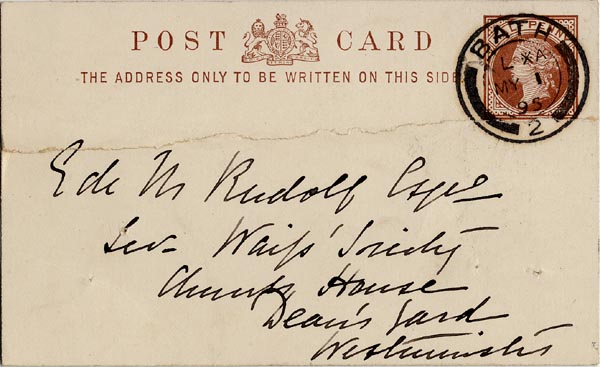 POST CARD
THE ADDRESS ONLY TO BE WRITTEN ON THIS SIDE
BATH
L XA
MY 1
95
2
Ed. M Rudolf Esqre
Sec- Waifs' Society
Church House
Dean's Yard
Westminster